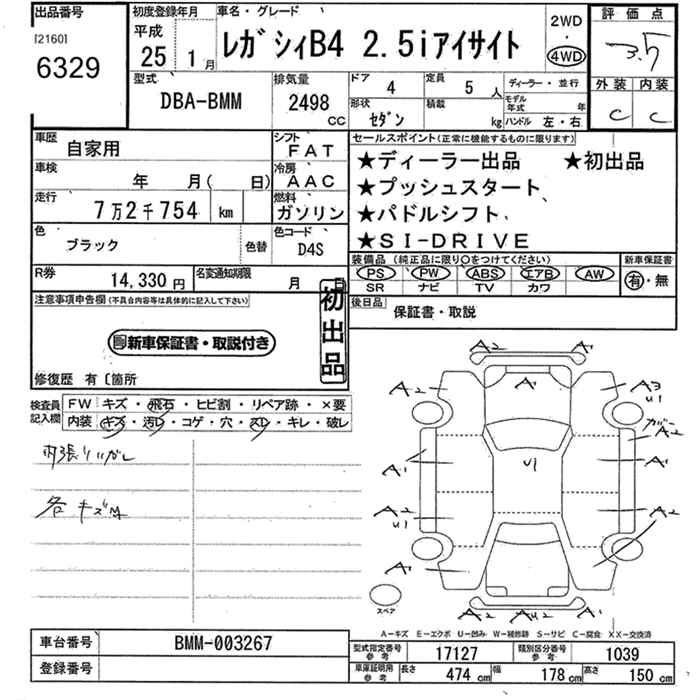 出品番号
[2160]
6329
初度登録年月
平成
25 1月
車名・グレード
レガシィB4 2.5iアイサイト
2WD
・
4WD
評価点
3.5
外装 内装
C C
型式
DBA-BMM
排気量
2498
CC
ドア
4
定員
5 人
ディーラー・並行
形状
セダン
積載
kg
モデル年式 年
ハンドル 左・右
車歴
自家用
シフト
FAT
車検
年 月( 日)
冷房
AAC
走行
7万2千754 km
燃料
ガソリン
色
ブラック
色替
色コード
D4S
R券
14,330円
名変通知期限
月 日
セールスポイント(正常に機能するものに限ります)
★ディーラー出品 ★初出品
★プッシュスタート
★パドルシフト
★SI-DRIVE
装備品(純正品に限り○をつけてください)
PS PW ABS エアB AW
SR ナビ TV カワ
新車保証書
有・無
注意事項申告欄(不具合内容等は具体的に記入して下さい)
初出品
新車保証書・取説付き
修復歴 有〔箇所
後日品
保証書・取説
検査員記入欄
FW キズ・飛石・ヒビ割・リペア跡・×要
内装 キズ・汚レ・コゲ・穴・スレ・キレ・破レ
各キズ
A2 A1
A2 A1 A3
U1
A2
A1 U1 A1
A2
U1
A2
A1 A1
A2 AU2
スペア
A-キズ E-エクボ U-凹み W-補修跡 S-サビ C-腐食 XX-交換済
車台番号
BMM-003267
登録番号
型式指定番号
参考
17127
類別区分番号
参考
1039
車庫証明用
参考
長さ
474 cm
幅
178 cm
高さ
150 cm